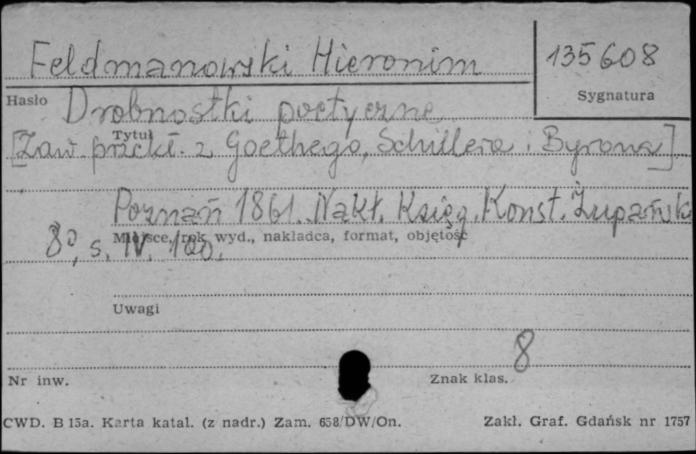 Feldmanowski Hieronim
135608
Hasło
Sygnatura
Drobnostki poetyczne
Tytuł
[Zaw. przekł. z Goethego, Schillera i Byrona]
Poznań 1861. Nakł. Księg. Konst. Żupański
Miejsce, rok wyd., nakładca, format, objętość
8°, s. IV, 100.
Uwagi
8
Nr inw.
Znak klas.
CWD. B 15a. Karta katal. (z nadr.) Zam. 658/DW/On.
Zakł. Graf. Gdańsk nr 1757